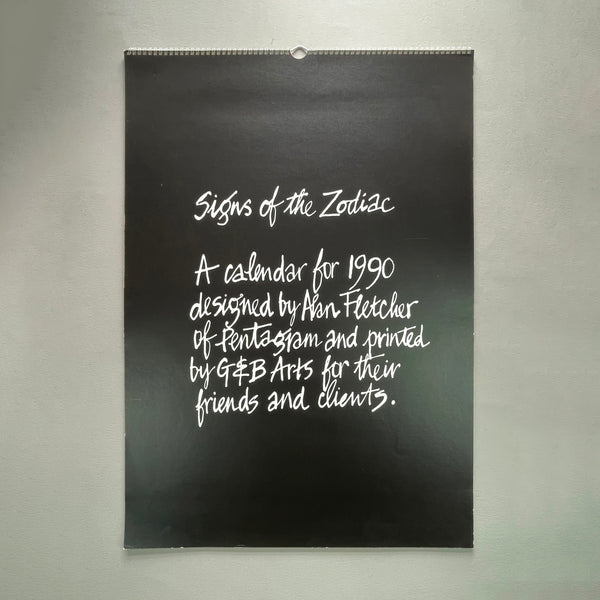 Signs of the Zodiac
A calendar for 1990
designed by Alan Fletcher
of Pentagram and printed
by G&B Arts for their
friends and clients.